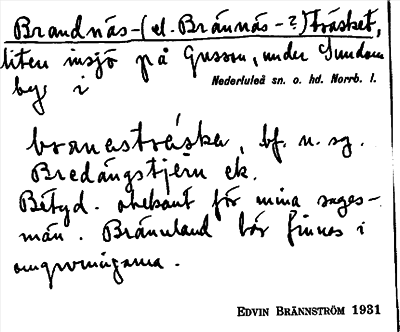 Brandnäs-(el. Brännäs-?)träsket,
liten insjö på Gusson, under Sundom
by i Nederluleå sn. o. hd. Norrb. l.
bf. n. sg.
Bredängstjern ek.
Betyd. obekant för mina sages-
män. Brännland bör finnas i
omgivningarna.
EDVIN BRÄNNSTRÖM 1931